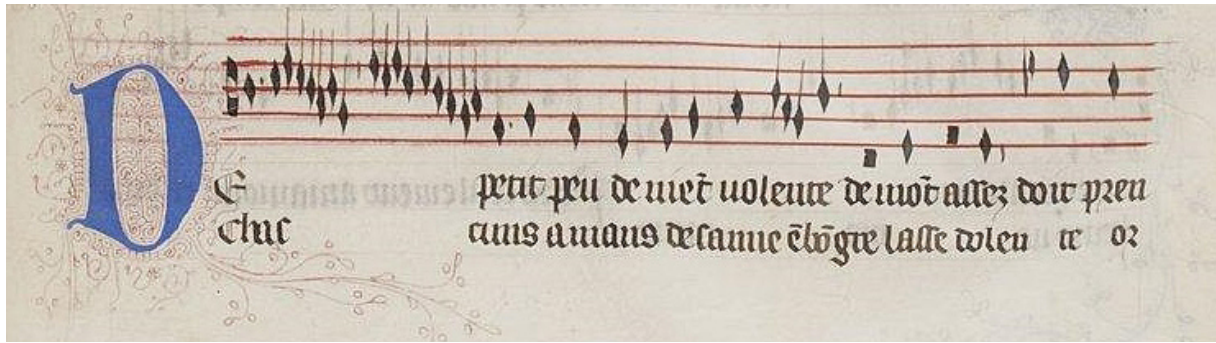 DE petit peu de niēt uolente de mōt assez doit pren
Chas cuns amans de samie ē bō gre lasse dolen te or